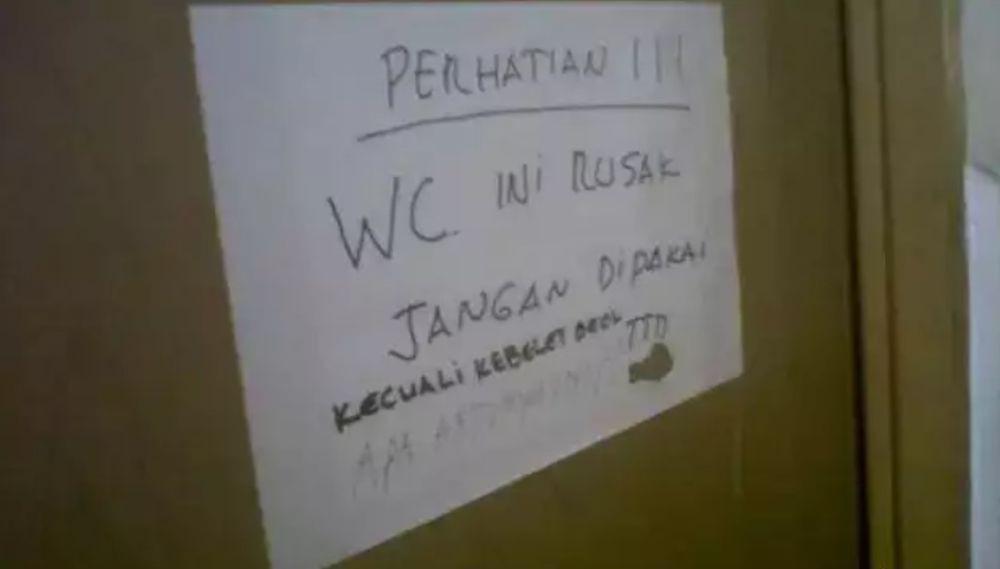 PERHATIAN !!!
WC INI RUSAK
JANGAN DIPAKAI
KECUALI KEBELET BEOL TTD
APA